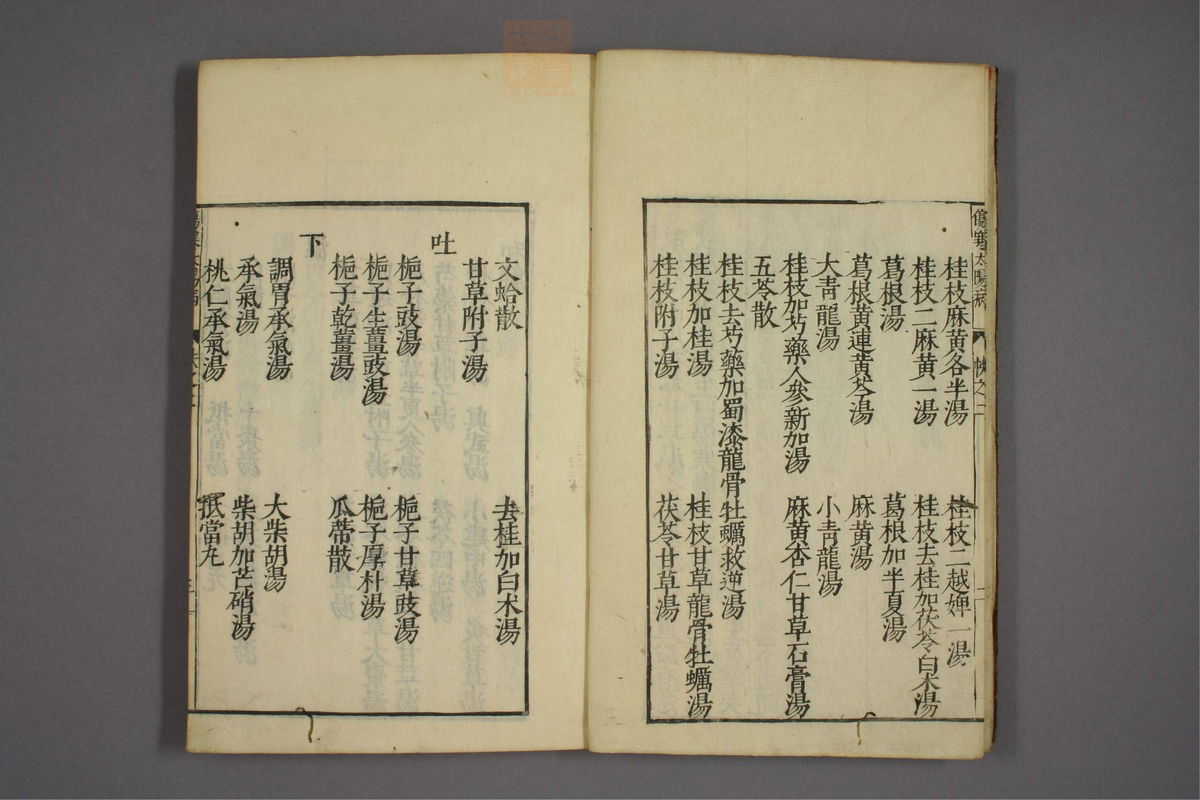 傷寒太陽病
帙之二
二
桂枝麻黃各半湯 桂枝二越婢一湯
桂枝二麻黃一湯 桂枝去桂加茯苓白朮湯
葛根湯 葛根加半夏湯
葛根黃連黃芩湯 麻黃湯
大青龍湯 小青龍湯
桂枝加芍藥人參新加湯 麻黃杏仁甘草石膏湯
五苓散
桂枝去芍藥加蜀漆龍骨牡蠣救逆湯
桂枝加桂湯 桂枝甘草龍骨牡蠣湯
桂枝附子湯 茯苓甘草湯
文蛤散 去桂加白朮湯
甘草附子湯
吐
梔子豉湯 梔子甘草豉湯
梔子生薑豉湯 梔子厚朴湯
梔子乾薑湯 瓜蒂散
下
調胃承氣湯 大柴胡湯
承氣湯 柴胡加芒硝湯
桃仁承氣湯 抵當丸